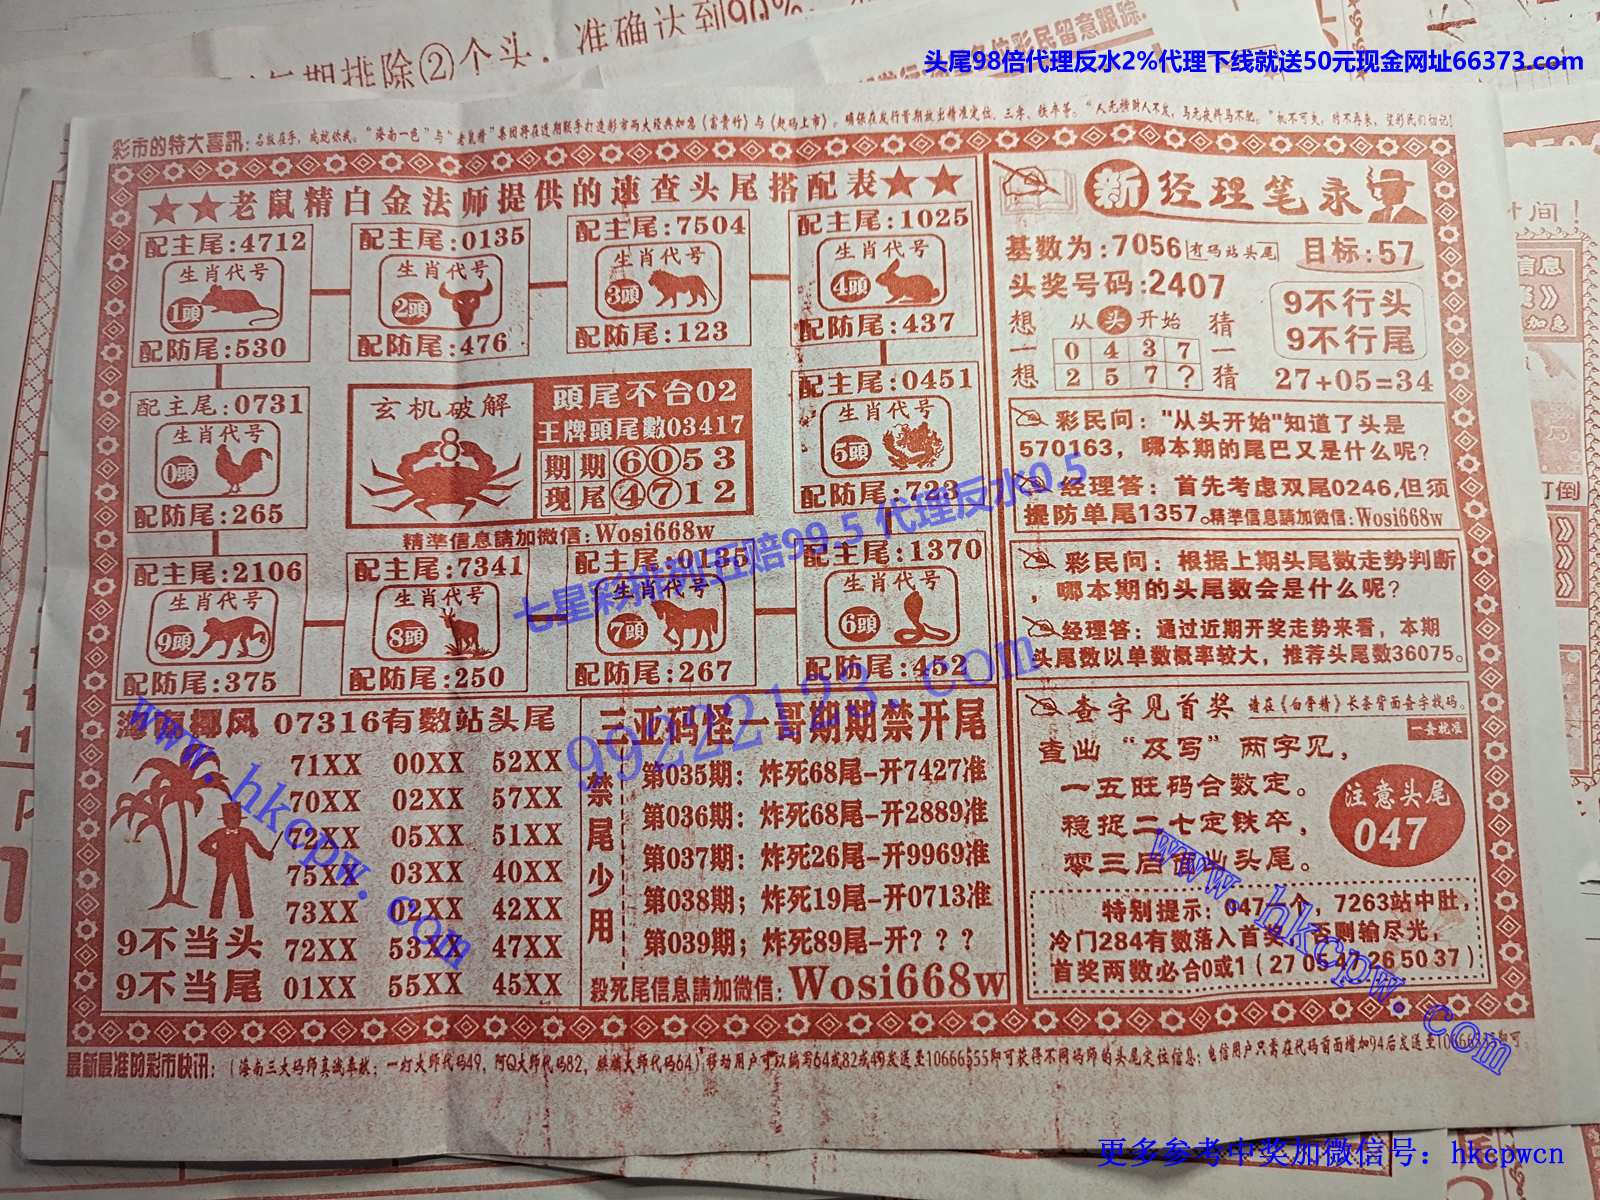 期排除②个头，准确达到90%
各位彩民留意跟踪
头尾98倍代理反水2%代理下线就送50元现金网址66373.com
彩市的特大喜訊：名报在手，成就你我。"海南一色"与"老鼠精"集团将在近期联手打造彩市两大经典知急《富贵竹》与《赵码上市》。确保在发行首期放出精准定位、三字、铁卒等。"人无横财人不发，马无夜料马不肥。"机不可失，时不再来，望彩民们切记！
★★老鼠精白金法师提供的速查头尾搭配表★★
配主尾:4712
生肖代号
1頭
配防尾:530
配主尾:0135
生肖代号
2頭
配防尾:476
配主尾:7504
生肖代号
3頭
配防尾:123
配主尾:1025
生肖代号
4頭
配防尾:437
配主尾:0731
生肖代号
0頭
配防尾:265
玄机破解
8
頭尾不合02
王牌頭尾數03417
期期⑥⓪53
现尾④⑦12
精準信息請加微信:Wosi668w
配主尾:0451
生肖代号
5頭
配防尾:723
配主尾:2106
生肖代号
9頭
配防尾:375
配主尾:7341
生肖代号
8頭
配防尾:250
配主尾:0135
生肖代号
7頭
配防尾:267
配主尾:1370
生肖代号
6頭
配防尾:452
海南椰风 07316有數站头尾
71XX 00XX 52XX
70XX 02XX 57XX
72XX 05XX 51XX
75XX 03XX 40XX
73XX 02XX 42XX
72XX 53XX 47XX
01XX 55XX 45XX
9不当头
9不当尾
三亚码怪一哥期期禁开尾
禁尾少用
第035期：炸死68尾-开7427准
第036期：炸死68尾-开2889准
第037期：炸死26尾-开9969准
第038期；炸死19尾-开0713准
第039期；炸死89尾-开？？？
殺死尾信息請加微信:Wosi668w
新经理笔录
基数为:7056 有码站头尾 目标:57
头奖号码:2407
想一想
从头开始
0 4 3 7
2 5 7 ?
猜一猜
9不行头
9不行尾
27+05=34
彩民问："从头开始"知道了头是
570163，哪本期的尾巴又是什么呢?
经理答：首先考虑双尾0246,但须
提防单尾1357。精準信息請加微信:Wosi668w
彩民问：根据上期头尾数走势判断
，哪本期的头尾数会是什么呢?
经理答：通过近期开奖走势来看，本期
头尾数以单数概率较大，推荐头尾数36075。
查字见首奖 请在《白骨精》长条背面查字找码。
一查就准
查出"及写"两字见，
一五旺码合数定。
稳捉二七定铁卒，
零三后面出头尾。
注意头尾
047
特别提示：047一个，7263站中肚，
冷门284有數落入首奖，否则输尽光，
首奖两数必合0或1（27 05 47 26 50 37）
最新最准的彩市快讯：（海南三大码师真诚奉献：一灯大师代码49，阿Q大师代码82，麒麟大师代码64）移动用户可以编写64或82或49发送至10666555即可获得不同码师的头尾定位信息；电信用户只需在代码前面增加94后发送至10666555即可。
七星彩
赔99.5 代理反水0.5
99222123.com
www.hkcpw.com
www.hkcpw.com
更多参考中奖加微信号：hkcpwcn